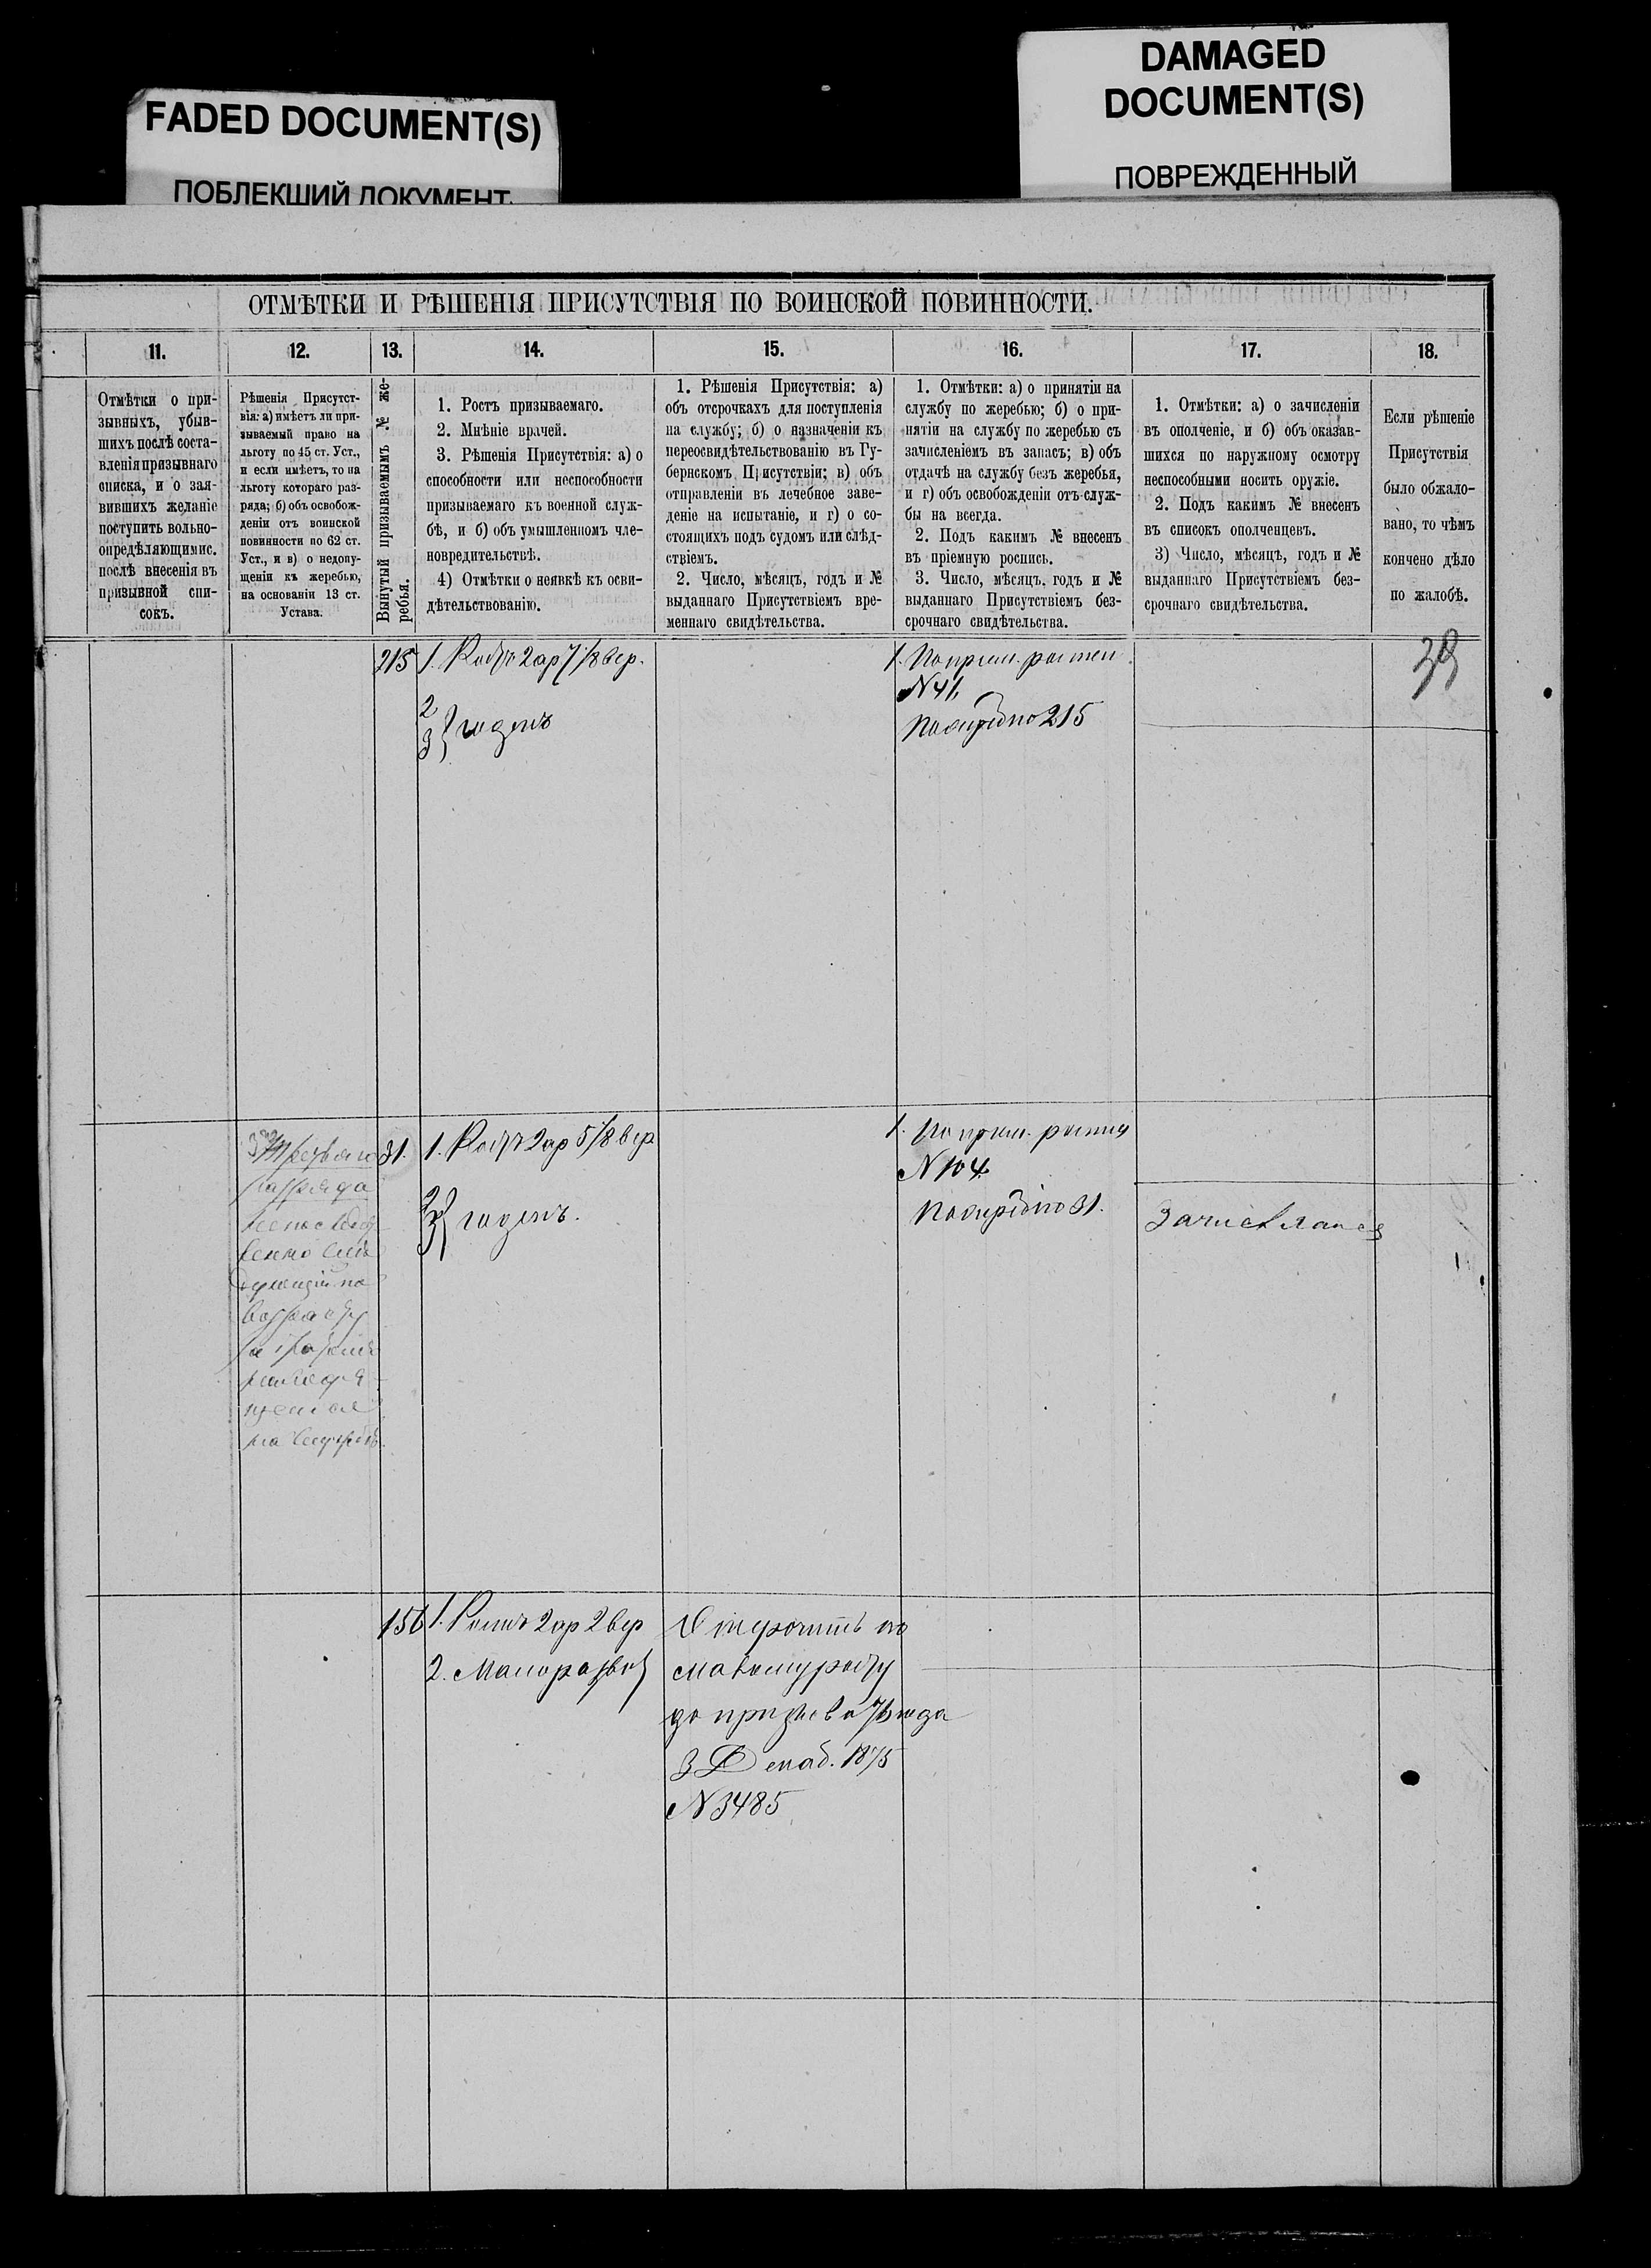 FADED DOCUMENT(S)
ПОБЛЕКШИЙ ДОКУМЕНТ
DAMAGED
DOCUMENT(S)
ПОВРЕЖДЕННЫЙ
ОТМѢТКИ И РѢШЕНІЯ ПРИСУТСТВІЯ ПО ВОИНСКОЙ ПОВИННОСТИ.
11.
12.
13.
14.
15.
16.
17.
18.
Отмѣтки о при-
зывныхъ, убыв-
шихъ послѣ соста-
вленія призывнаго
списка, и о зая-
вившихъ желаніе
поступить вольно-
опредѣляющимис.
послѣ внесенія въ
призывной спи-
сокъ.
Рѣшенія Присутст-
вія: а) имѣетъ ли при-
зываемый право на
льготу по 45 ст. Уст.,
и если имѣетъ, то на
льготу котораго раз-
ряда; б) объ освобож-
деніи отъ воинской
повинности по 62 ст.
Уст., и в) о недопу-
щеніи къ жеребью,
на основаніи 13 ст.
Устава.
Вынутый призываемымъ № же-
ребья.
1. Ростъ призываемаго.
2. Мнѣніе врачей.
3. Рѣшенія Присутствія: а) о
способности или неспособности
призываемаго къ военной служ-
бѣ, и б) объ умышленномъ чле-
новредительствѣ.
4) Отмѣтки о неявкѣ къ осви-
дѣтельствованію.
1. Рѣшенія Присутствія: а)
объ отсрочкахъ для поступленія
на службу; б) о назначеніи къ
переосвидѣтельствованію въ Гу-
бернскомъ Присутствіи; в) объ
отправленіи въ лечебное заве-
деніе на испытаніе, и г) о со-
стоящихъ подъ судомъ или слѣд-
ствіемъ.
2. Число, мѣсяцъ, годъ и №
выданнаго Присутствіемъ вре-
меннаго свидѣтельства.
1. Отмѣтки: а) о принятіи на
службу по жеребью; б) о при-
нятіи на службу по жеребью съ
зачисленіемъ въ запасъ; в) объ
отдачѣ на службу безъ жеребья,
и г) объ освобожденіи отъ служ-
бы на всегда.
2. Подъ какимъ № внесенъ
въ пріемную роспись.
3. Число, мѣсяцъ, годъ и №
выданнаго Присутствіемъ без-
срочнаго свидѣтельства.
1. Отмѣтки: а) о зачисленіи
въ ополченіе, и б) объ оказав-
шихся по наружному осмотру
неспособными носить оружіе.
2. Подъ какимъ № внесенъ
въ списокъ ополченцевъ.
3) Число, мѣсяцъ, годъ и №
выданнаго Присутствіемъ без-
срочнаго свидѣтельства.
Если рѣшеніе
Присутствія
было обжало-
вано, то чѣмъ
кончено дѣло
по жалобѣ.
39
215
1. Ростъ 2 ар 7/8 вер.
2
3 } годенъ
1. По прием. роспи
N 41
по жребію 215
Третьяго
разряда
непосредст
венно слѣ
дующій по
возрасту
за братомъ
находя
щемся
на службѣ.
31.
1. Ростъ 2 ар 5/8 вер
2
3 } годенъ.
1. По прием. росписи
N 104
по жребію 31.
Зачислен
156
1. Ростъ 2 ар 2 вер
2. Малоразвит
Отсрочить по
малому росту
до призыва 76 года
3 Декаб. 1875
N 3485